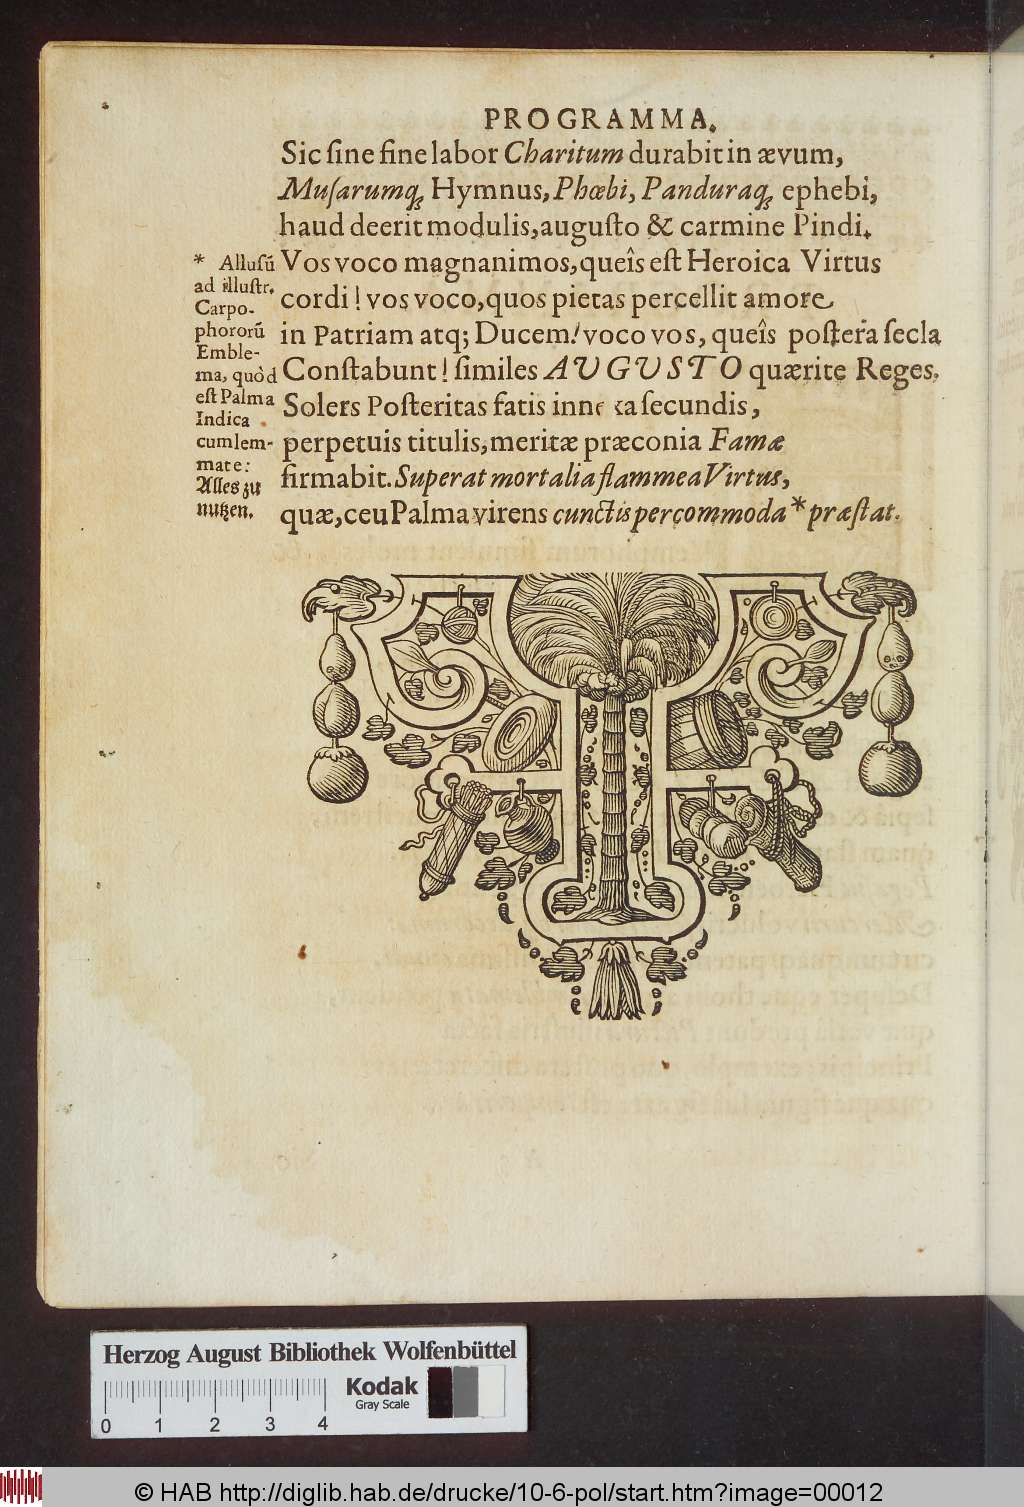 PROGRAMMA.
Sic ſine fine labor Charitum durabit in ævum,
Muſarumq; Hymnus, Phœbi, Panduraq; ephebi,
haud deerit modulis, auguſto & carmine Pindi.
Vos voco magnanimos, queîs eſt Heroica Virtus
cordi! vos voco, quos pietas percellit amore
in Patriam atq; Ducem! voco vos, queîs poſtera ſecla
Conſtabunt! ſimiles AUGUSTO quærite Reges.
Solers Poſteritas fatis ſecundis,
perpetuis titulis, meritæ præconia Famæ
firmabit. Superat mortalia flammea Virtus,
quæ, ceu Palma virens cunctis per commoda * præſtat.
* Alluſū
ad illuſtr.
Carpo-
phororū
Emble-
ma, quòd
eſt Palma
Indica
cum lem-
mate:
Alles zu
nutzen.
Herzog August Bibliothek Wolfenbüttel
Kodak
Gray Scale
0 1 2 3 4
© HAB http://diglib.hab.de/drucke/10-6-pol/start.htm?image=00012